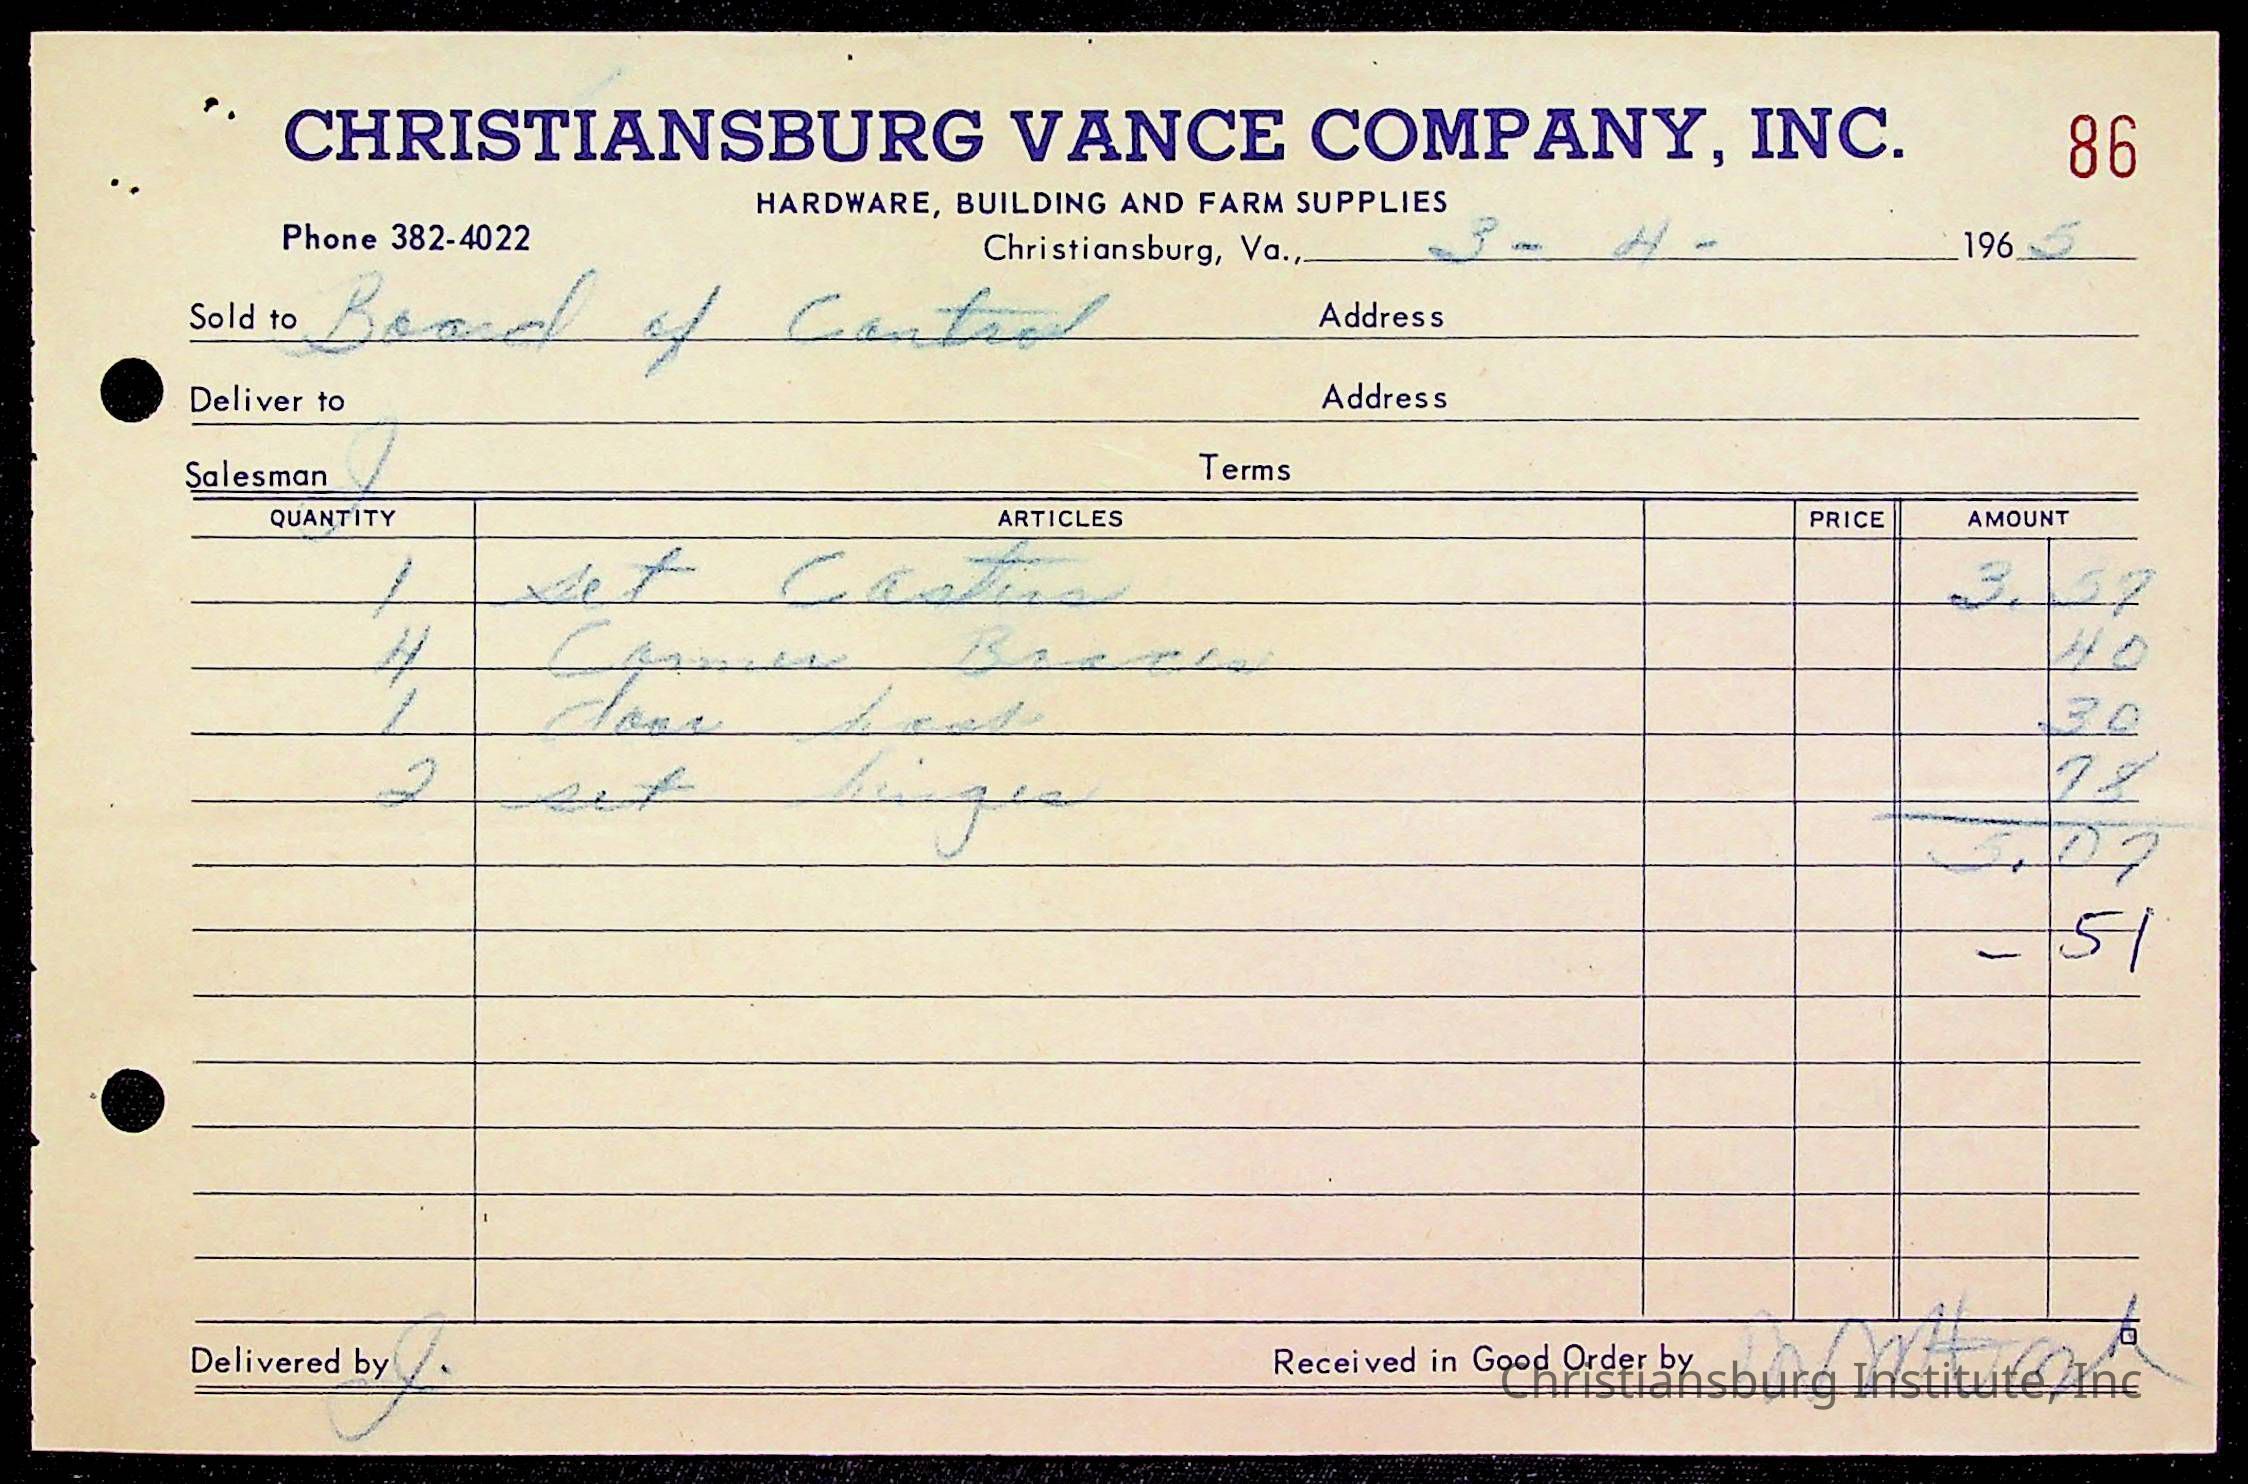 CHRISTIANSBURG VANCE COMPANY, INC. 86
HARDWARE, BUILDING AND FARM SUPPLIES
Phone 382-4022 Christiansburg, Va., 3-4- 1965
Sold to Board of Control Address
Deliver to Address
Salesman J Terms
QUANTITY ARTICLES PRICE AMOUNT
1 set Casters 3.59
4 Corner Braces 40
1 door hook 30
2 set hinges 78
5.07
- 51
Delivered by J. Received in Good Order by
Christiansburg Institute, Inc